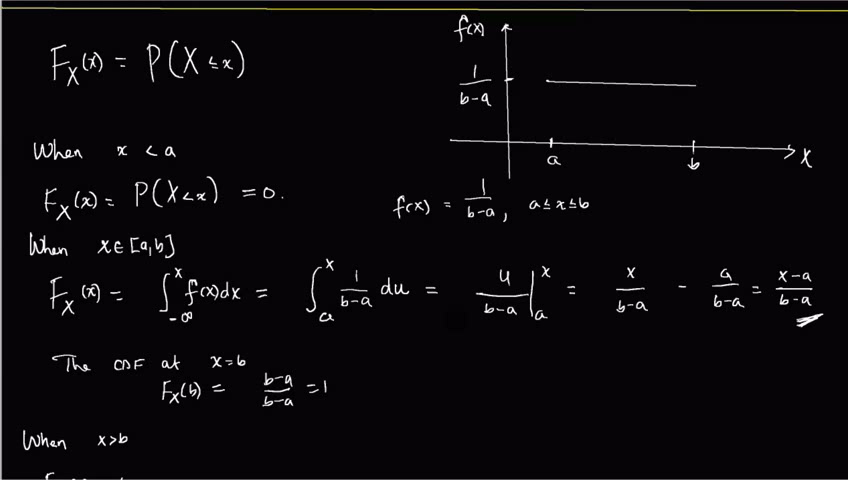 F_X(x) = P(X ≤ x)
f(x)
1/(b-a)
a b X
When x < a
F_X(x) = P(X < x) = 0.
f(x) = 1/(b-a), a ≤ x ≤ b
When x ∈ [a, b]
F_X(x) = ∫_{-∞}^{x} f(x)dx = ∫_{a}^{x} 1/(b-a) du = u/(b-a) |_{a}^{x} = x/(b-a) - a/(b-a) = (x-a)/(b-a)
The CDF at x=b
F_X(b) = (b-a)/(b-a) = 1
When x>b